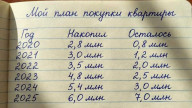 Мой план покупки квартиры
Год Накопил Осталось
2020 2,8 млн 0,8 млн
2021 3,0 млн 1,2 млн
2022 3,5 млн 2,0 млн
2023 4,8 млн 2,5 млн
2024 5,4 млн 3,0 млн
2025 6,0 млн 7,0 млн